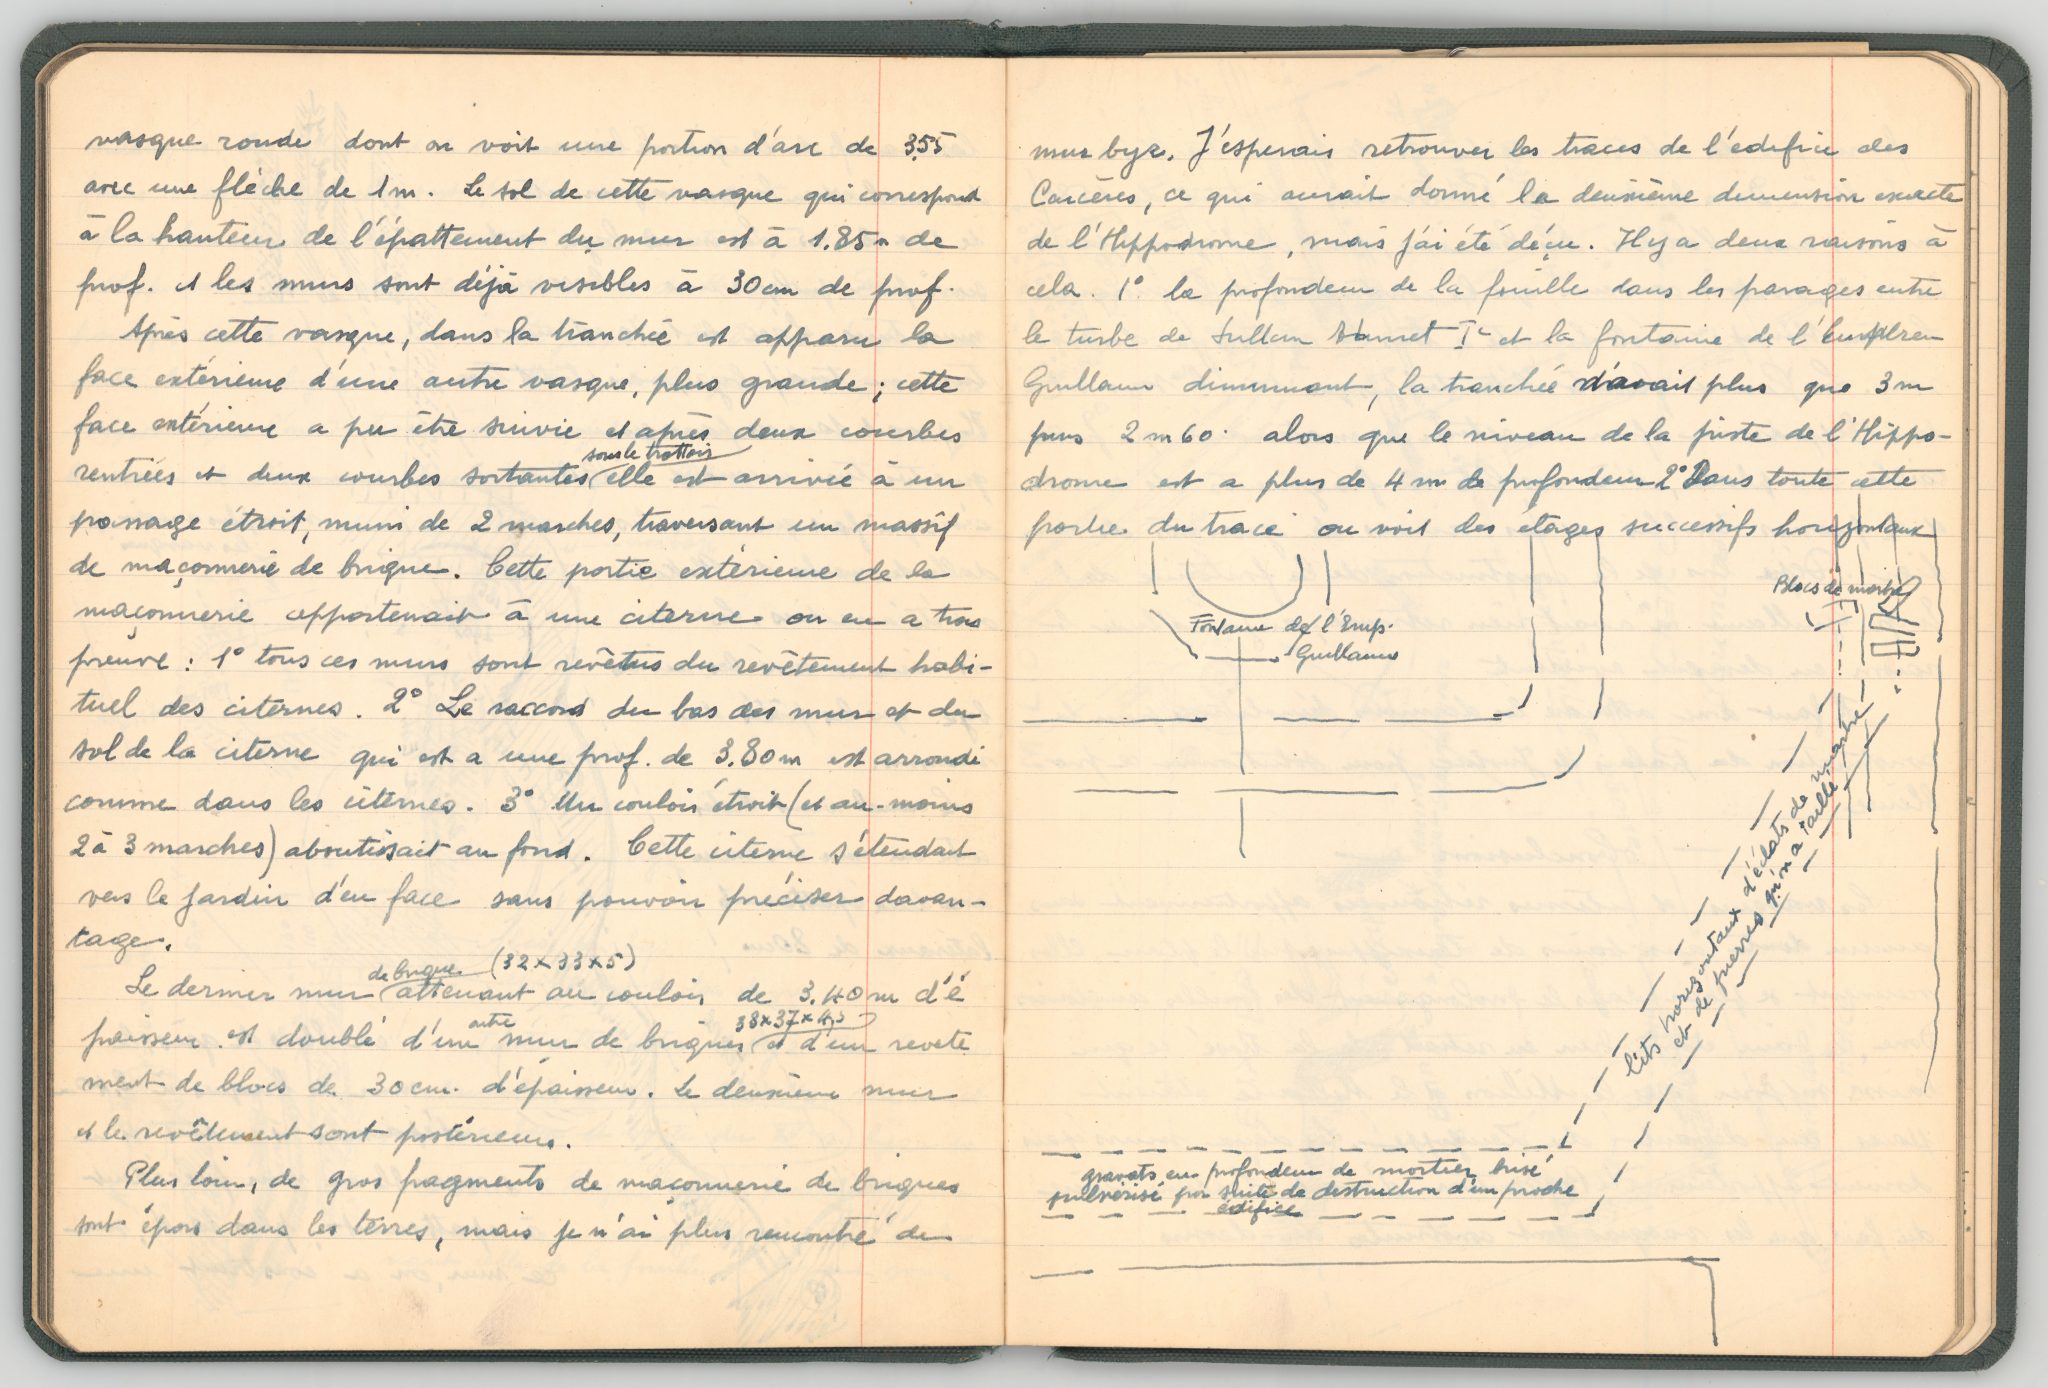 vasque ronde dont on voit une portion d'arc de 3.55
avec une flèche de 1m. Le sol de cette vasque qui correspond
à la hauteur de l'épattement du mur est à 1.85m de
prof. et les murs sont déjà visibles à 30cm de prof.
Après cette vasque, dans la tranchée est apparu la
face extérieure d'une autre vasque, plus grande; cette
face extérieure a pu être suivie et après deux courbes
rentrées et deux courbes sortantes sous le trottoir elle est arrivée à un
passage étroit, muni de 2 marches, traversant un massif
de maçonnerie de brique. Cette partie extérieure de la
maçonnerie appartenait à une citerne on en a trois
preuve : 1° tous ces murs sont revêtus du revêtement habi-
tuel des citernes. 2° Le raccord du bas des mur et du
sol de la citerne qui est a une prof. de 3.80m est arrondi
comme dans les citernes. 3° Un couloir étroit (et au-moins
2 à 3 marches) aboutissait au fond. Cette citerne s'étendait
vers le jardin d'en face sans pouvoir préciser davan-
tage.
Le dernier mur de brique (32x33x5) attenant au couloir de 3.40m d'é
paisseur est doublé d'un autre mur de briques 38x37x4,5 et d'un revete
ment de blocs de 30cm. d'épaisseur. Le deuxième mur
et le revêtement sont postérieurs.
Plus loin, de gros fragments de maçonnerie de briques
sont épars dans les terres, mais je n'ai plus rencontré de
mur byz. J'esperais retrouver les traces de l'édifice des
Carcères, ce qui aurait donné la deuxième dimension exacte
de l'Hippodrome, mais j'ai été déçu. Il y a deux raisons à
cela. 1° la profondeur de la fouille dans les parages entre
le turbe de Sultan Ahmet Ier et la fontaine de l'Empereur
Guillaume diminuant, la tranchée n'avait plus que 3m
puis 2m60. alors que le niveau de la piste de l'Hippo-
drome est a plus de 4m de profondeur 2° Dans toute cette
partie du tracé on voit des étages successifs horizontaux
Blocs de marbre
Fontaine de l'Emp.
Guillaume
lits horizontaux d'éclats de marbre
et de pierres qu'on a taillé
gravats en profondeur de mortier brisé
pulvérisé par suite de destruction d'un proche
édifice